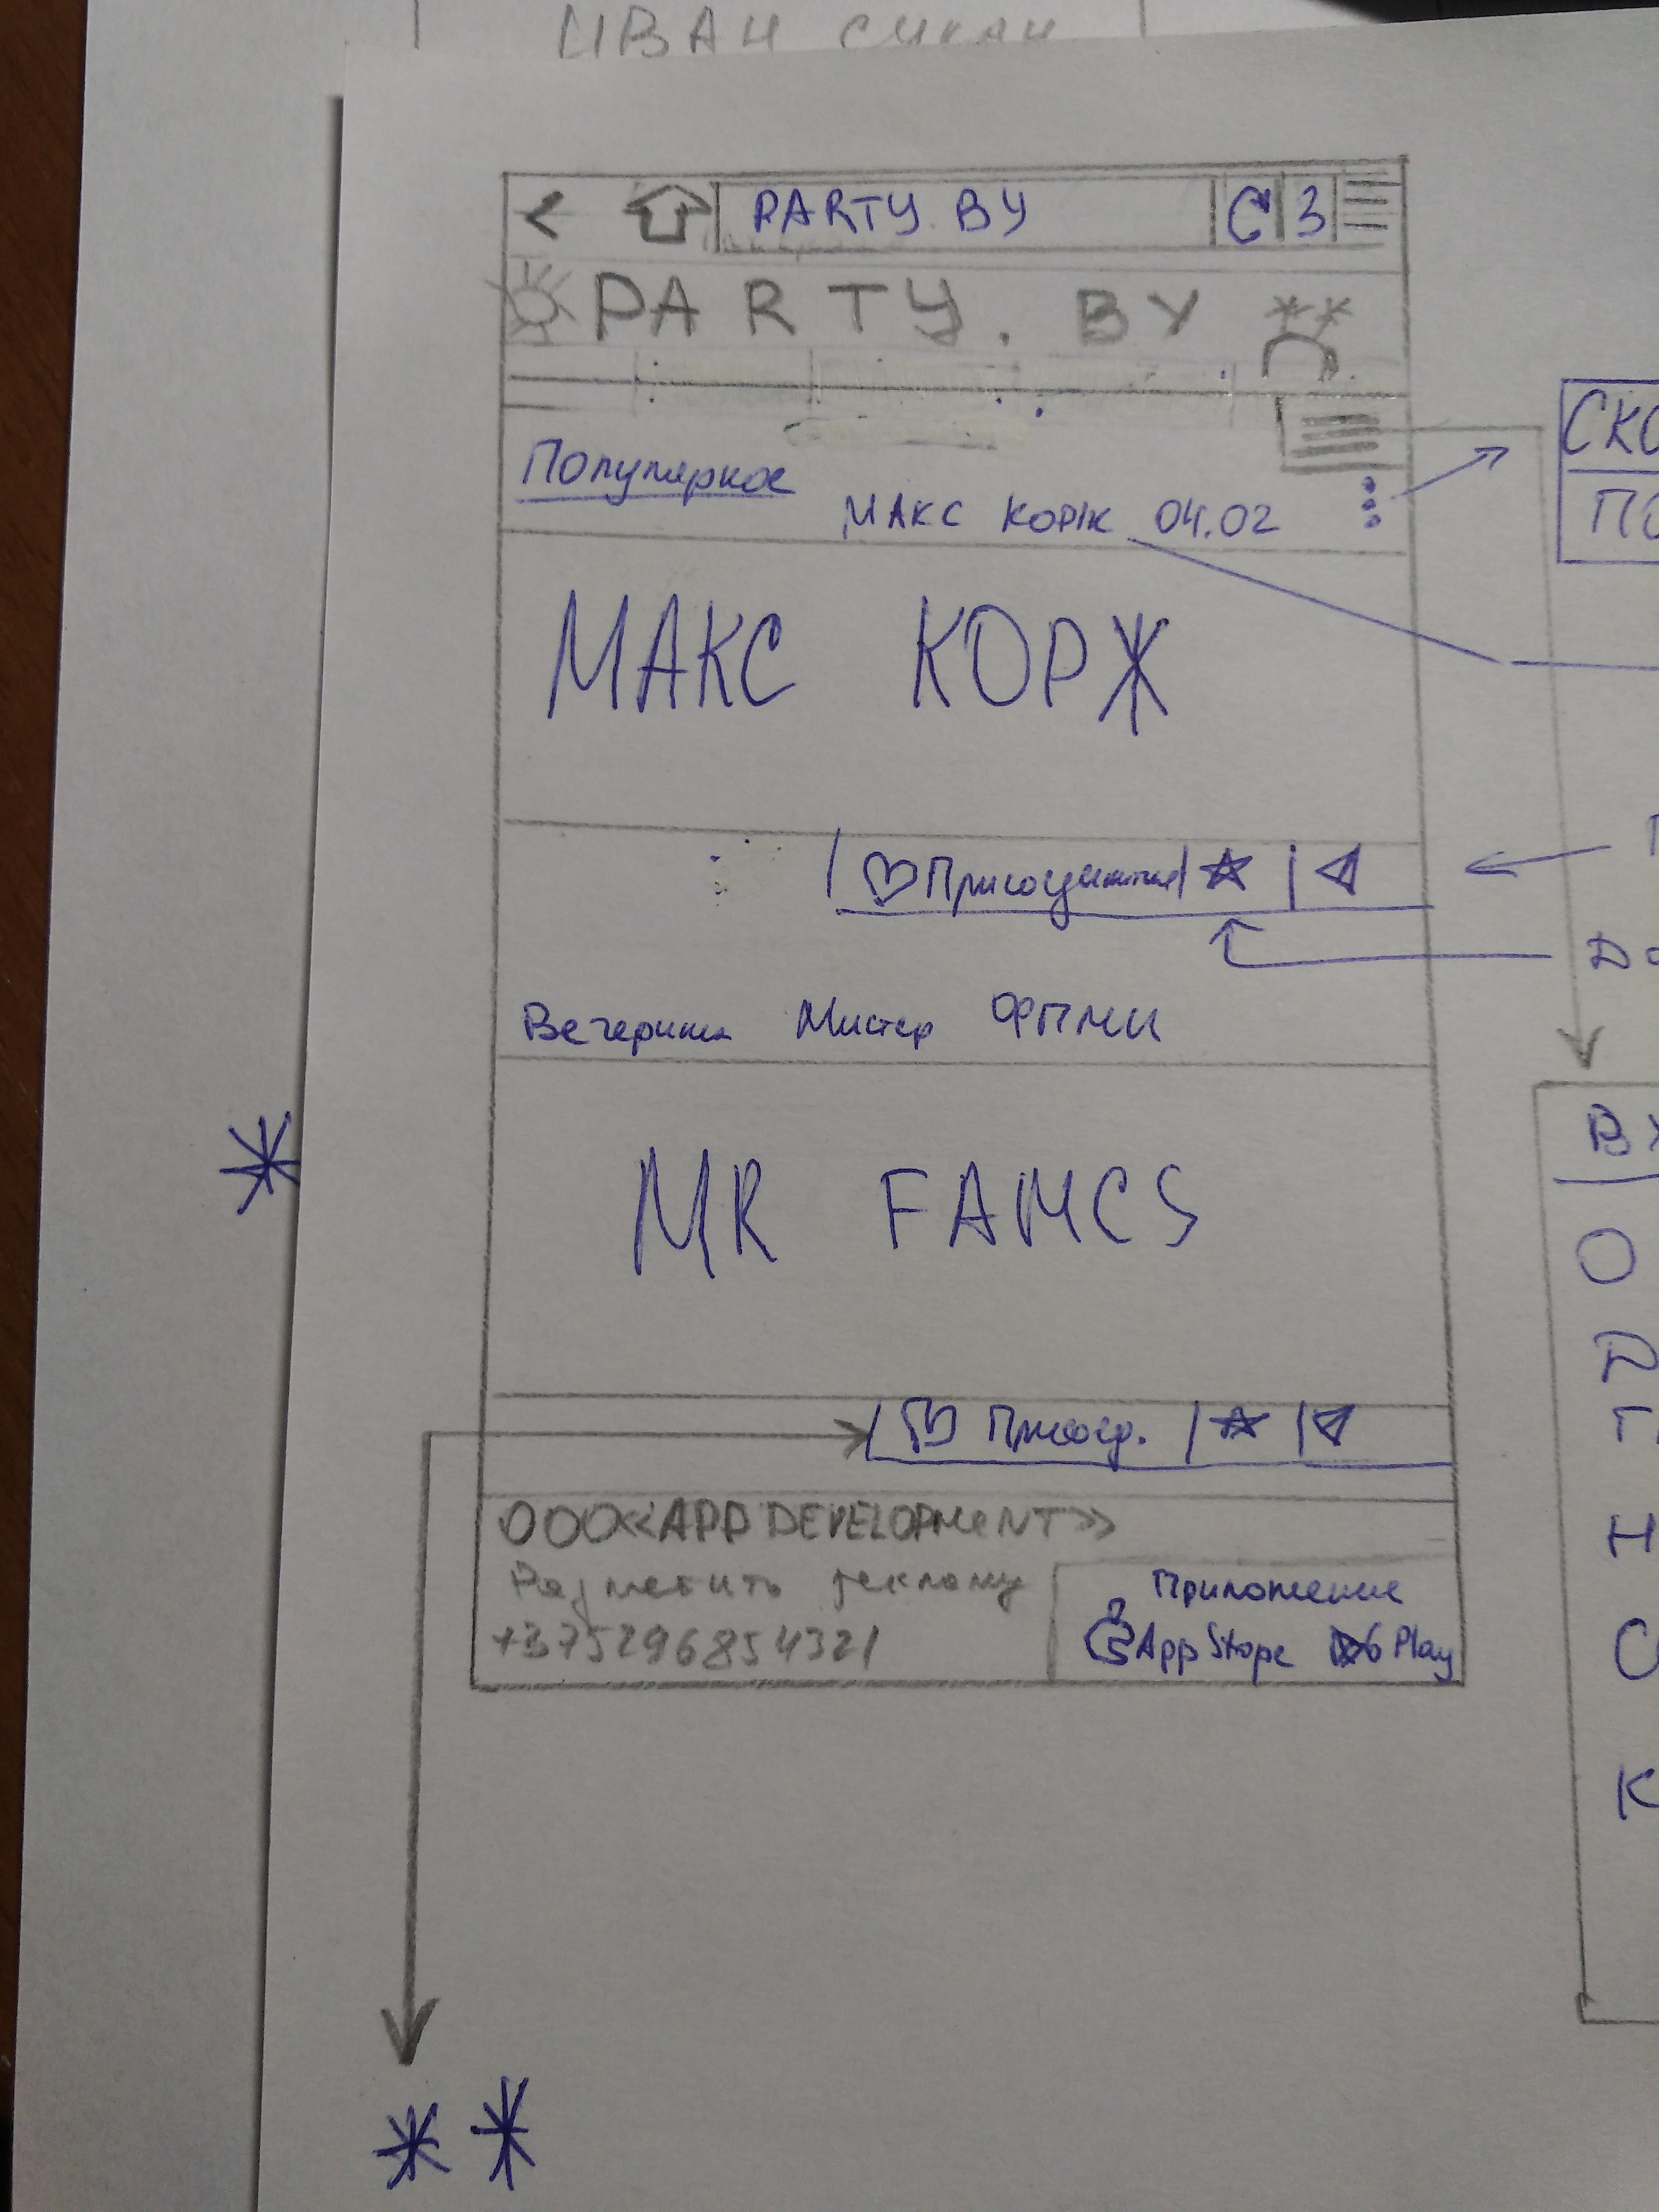 ИВАН
PARTY.BY C 3
PARTY.BY
Популярное
МАКС КОРЖ 04.02
МАКС КОРЖ
Присоединиться
Вечеринка Мистер ФПМИ
MR FAMCS
Присоед.
ООО«APP DEVELOPMeNT»
Разместить рекламу
+375296854321
Приложение
App Store G Play
СКО
ПО
П
ДО
ВХ
О
Н
С
К